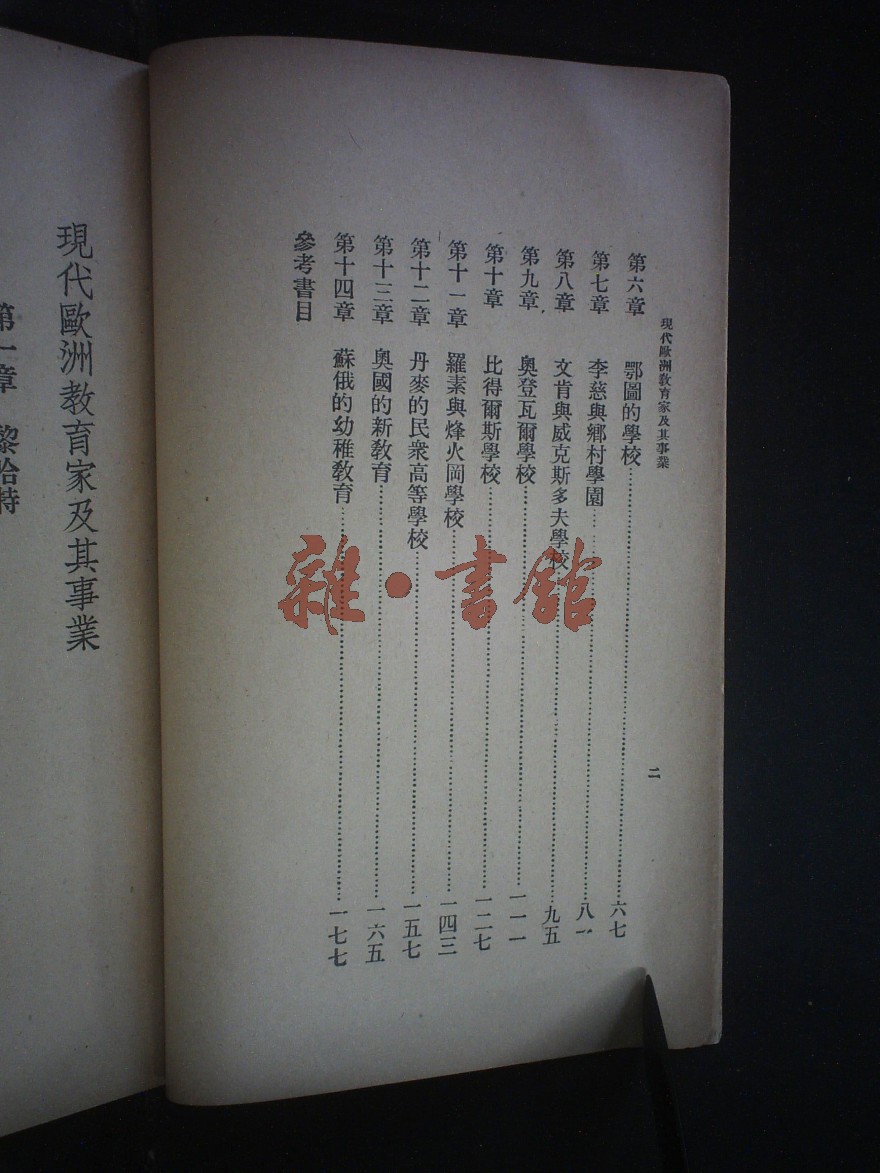 現代歐洲教育家及其事業
二
第六章 鄂圖的學校……六七
第七章 李慈與鄉村學園……八一
第八章 文肯與威克斯多夫學校……九五
第九章 奧登瓦爾學校……一一一
第十章 比得爾斯學校……一二七
第十一章 羅素與烽火岡學校……一四三
第十二章 丹麥的民衆高等學校……一五七
第十三章 奧國的新教育……一六五
第十四章 蘇俄的幼稚教育……一七七
參考書目
雜·書館
現代歐洲教育家及其事業
第一章 黎哈特